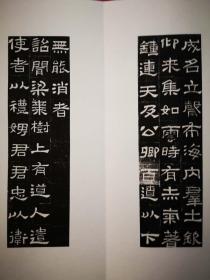 成名立聲布海内羣士欽
仰来集如雲時有赤氣著
鍾連天及公卿百遼以下
無能消者
詔聞梁棗樹上有道人遣
使者以禮娉君君忠以衛